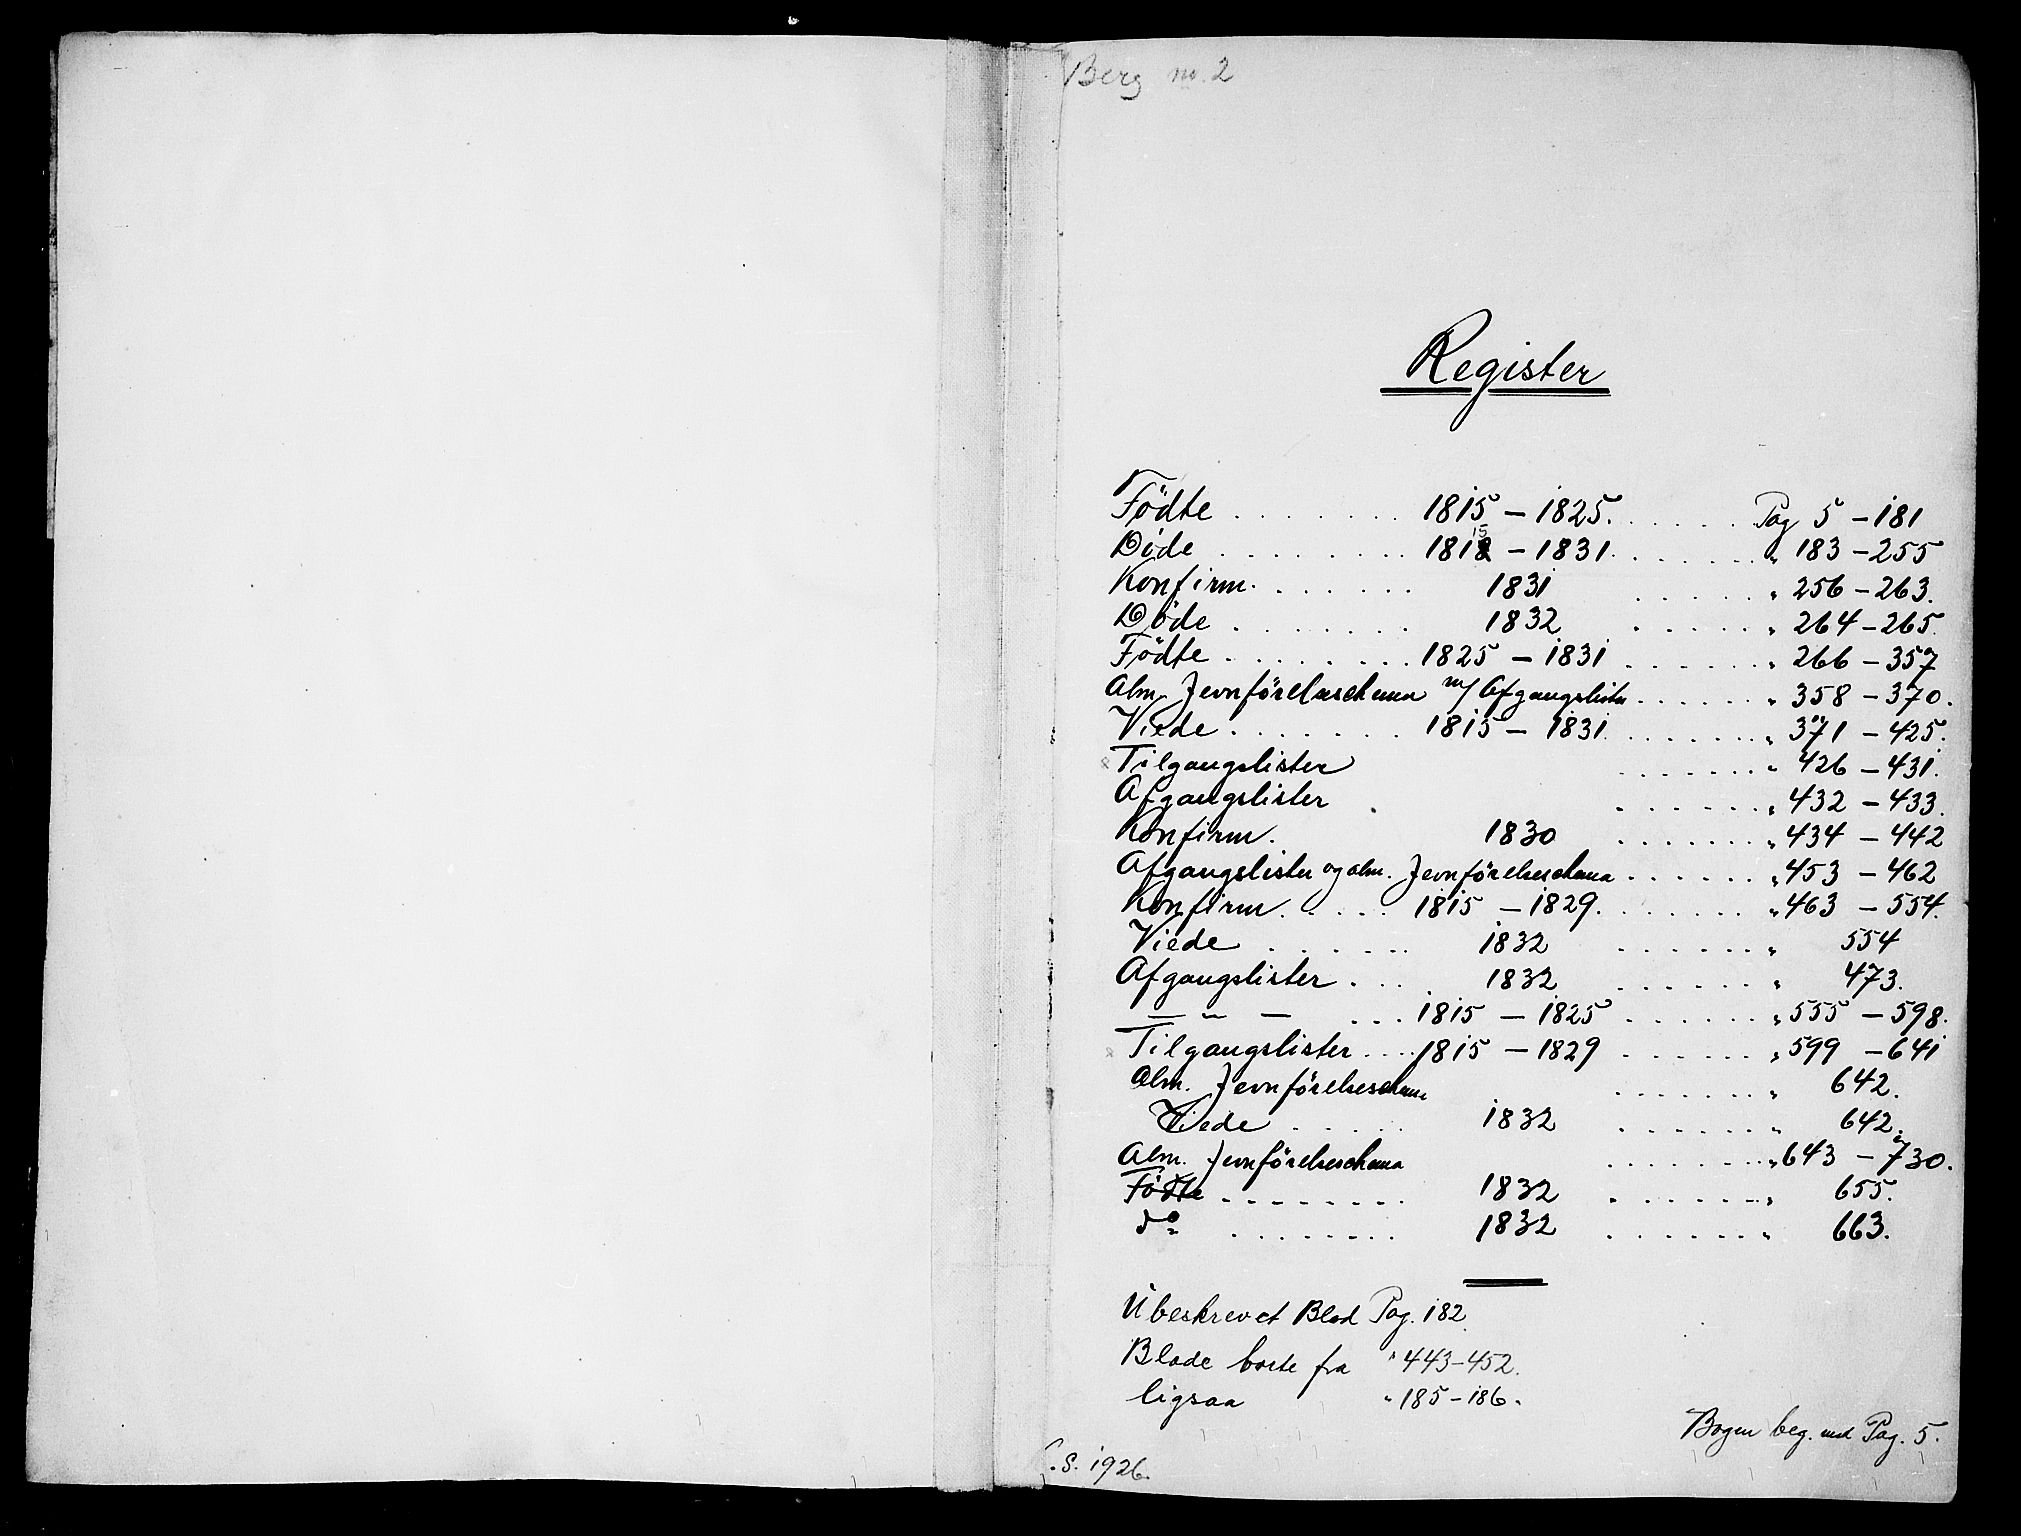 Berg no. 2
Register
Födte . . . . . . . . 1815 – 1825. . . . . . Pag 5 – 181
Döde . . . . . . . . 1815 – 1831. . . . . . " 183 – 255
Konfirm. . . . . . . 1831 . . . . . " 256 – 263.
Döde . . . . . . . 1832 . . . . . " 264 – 265.
Födte . . . . . . . . 1825 – 1831 . . . . . . " 266 – 357
Alm. Jevnförelseschema m/ Afgangslister . . . . . . " 358 – 370.
Viede . . . . . . . 1815 – 1831 . . . . . . " 371 – 425.
Tilgangslister . . . . . . " 426 – 431.
Afgangslister . . . . . . " 432 – 433.
Konfirm. 1830 . . . . . . " 434 – 442
Afgangslister og alm. Jevnförelseschema . . . . . . " 453 – 462
Konfirm. . . . . 1815 – 1829. . . . . . . " 463 – 554.
Viede . . . . . . 1832 . . . . . . " 554
Afgangslister . . . 1832 . . . . . . " 473.
— " — . . . 1815 – 1825 . . . . . . " 555 – 598.
Tilgangslister . . . . 1815 – 1829 . . . . . . " 599 – 641
Alm. Jevnförelseschema . . . . . . " 642.
Viede . . . . . 1832 . . . . . . " 642.
Alm. Jevnförelseschema . . . . . . . " 643 – 730.
Födte . . . . . . . . 1832 . . . . . . " 655.
do . . . . . . . . 1832 . . . . . . " 663.
Ubeskrevet Blad Pag. 182.
Blade borte fra " 443–452.
ligsaa " 185 – 186.
Bogen beg. med Pag. 5.
.S. 1926.